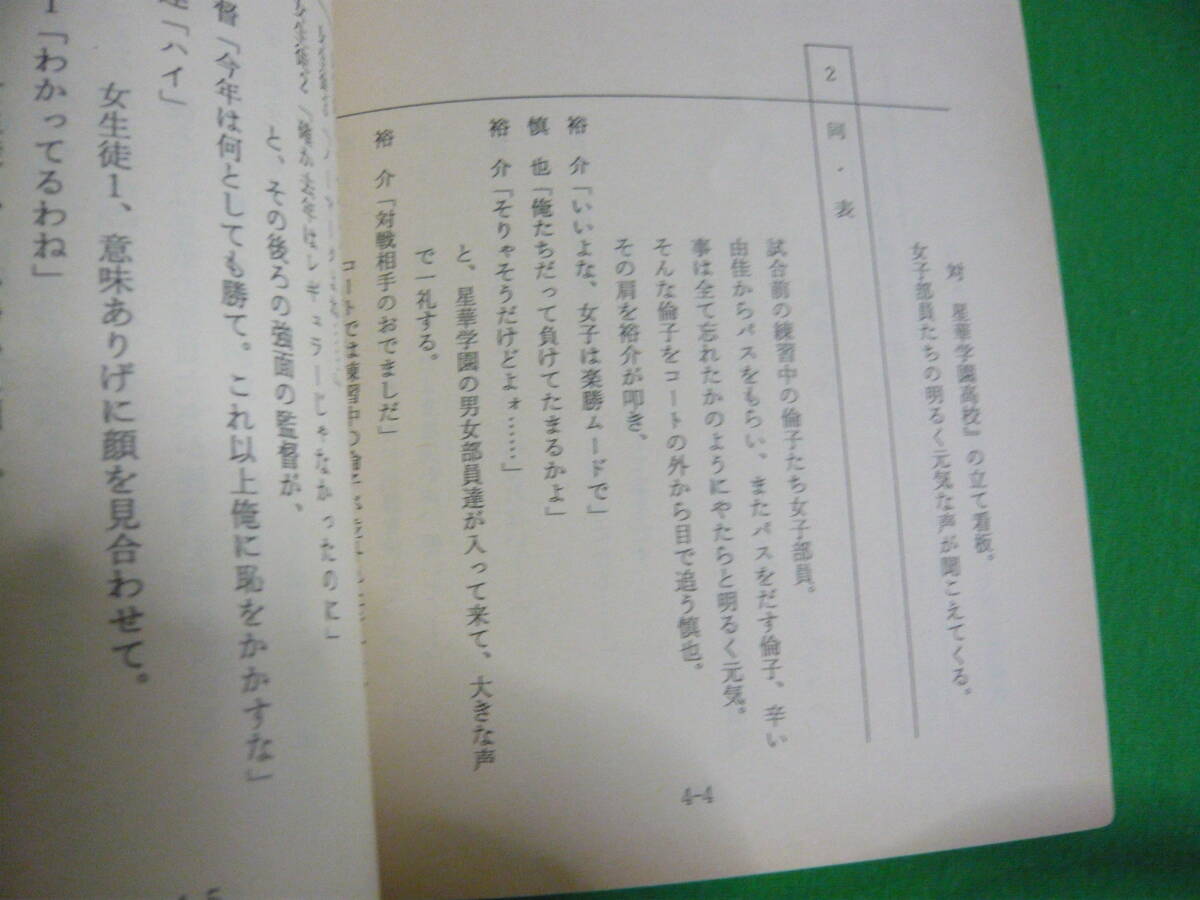 対　星華学園高校』の立て看板。
女子部員たちの明るく元気な声が聞こえてくる。
2　同・表
試合前の練習中の倫子たち女子部員。
由佳からパスをもらい、またパスをだす倫子、辛い
事は全て忘れたかのようにやたらと明るく元気。
そんな倫子をコートの外から目で追う慎也。
その肩を裕介が叩き、
裕　介「いいよな、女子は楽勝ムードで」
慎　也「俺たちだって負けてたまるかよ」
裕　介「そりゃそうだけどよォ……」
と、星華学園の男女部員達が入って来て、大きな声
で一礼する。
裕　介「対戦相手のおでましだ」
コートでは練習中の倫子が
4-4
「確か去年はレギュラーじゃなかったのに」
と、その後ろの強面の監督が、
督「今年は何としても勝て。これ以上俺に恥をかかすな」
達「ハイ」
女生徒1、意味ありげに顔を見合わせて。
1「わかってるわね」